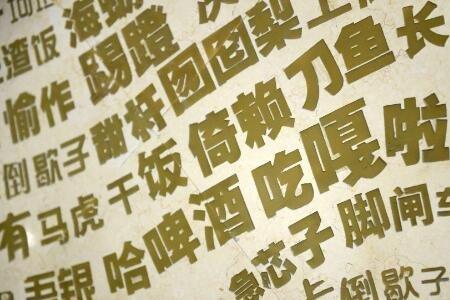 渣饭 海蛎
愉作 踢蹬
倒歇子 甜杆 囫囵梨 上
有 马虎 干饭 倚赖 刀鱼 长
银 哈啤酒 吃嘎啦
急芯子 脚闸
上 倒歇子